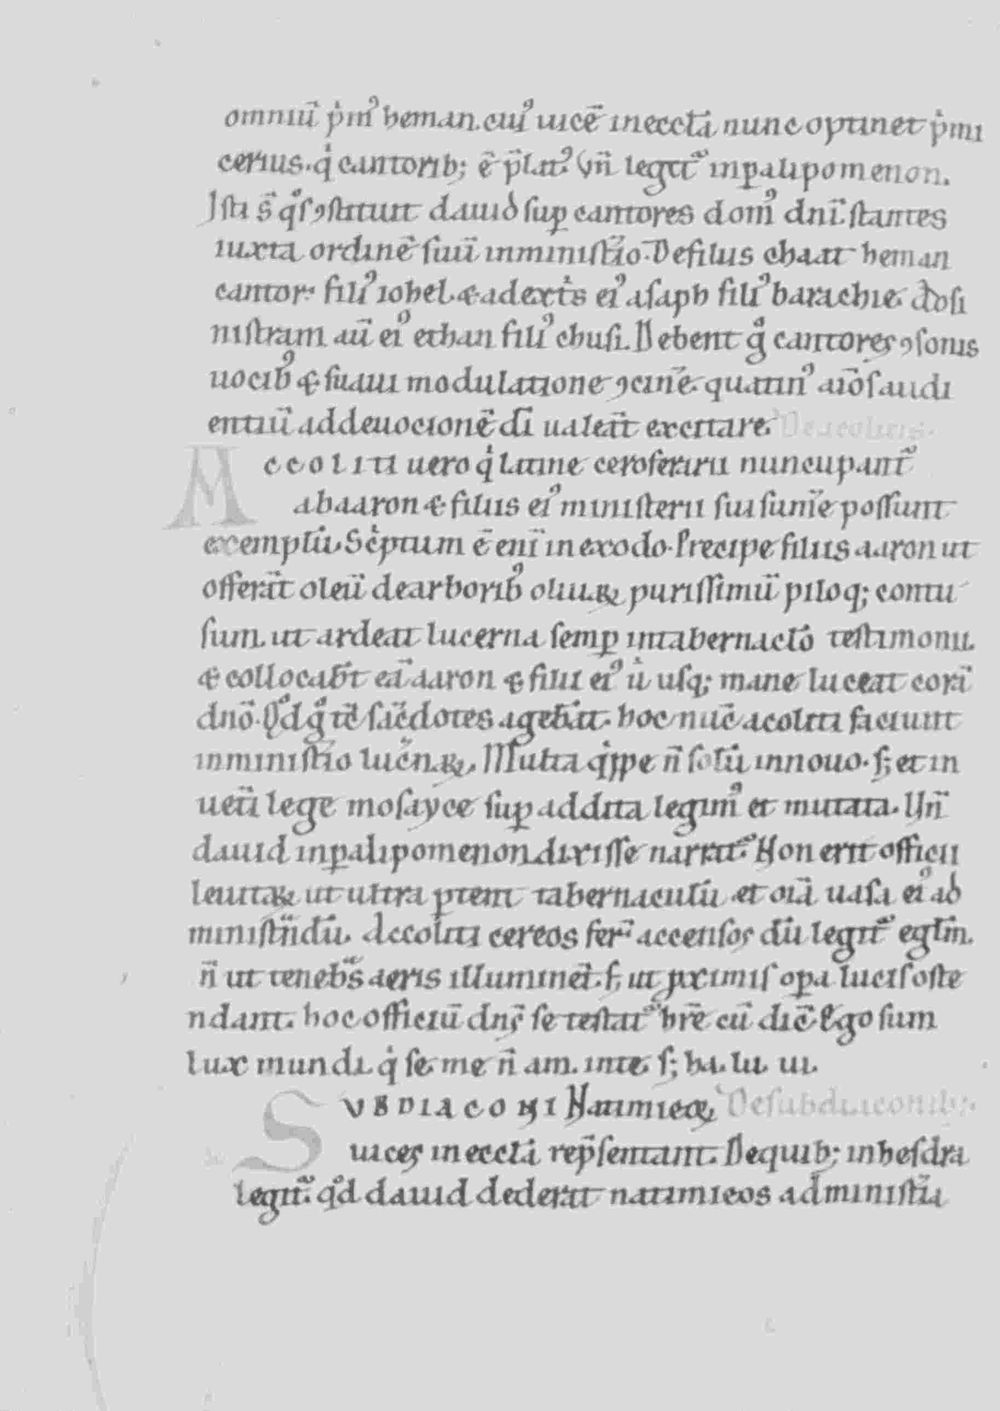 omniū p̍mꝰ heman. cuiꝰ uicē in eccl̄a nunc optinet p̍mi
cerius. q̍ cantorib; ē p̄latꝰ. Vn̄ legit᷑ in ꝑalipomenon.
Isti s̄ qͦs ꝯstituit dauid suꝑ cantores domꝰ dn̄i. stantes
iuxta ordinē suū in minist̄io. De filiis chaat heman
cantor. filiꝰ iohel. & a dext̍s eiꝰ asaph filiꝰ barachię. ad si
nistram aū eiꝰ ethan filiꝰ chusi. Debent gͦ cantores ꝯsonis
uocibꝰ & suaui modulatione ꝯcinē. quatinꝰ aīos audi
entiū ad deuocionē dī ualeāt excitare. De acolitis.
Accoliti uero q̍ latine ceroferarii nuncupant᷑
ab aaron & filiis eiꝰ ministerii sui sum̄e possunt
exemplū. Sc̍ptum ē enī in exodo. Precipe filiis aaron ut
offerāt oleū de arboribꝰ oliuaꝝ purissimū piloq; contu
sum. ut ardeat lucerna semꝑ in tabernacl̄o testimonii.
& collocab̄t eā aaron & filii eiꝰ ū usq; mane luceat corā
dn̄o. Qd̄ gͦ tc̄ sac̄dotes agebāt. hoc nūc acoliti faciunt
in minist̄io luc̄naꝝ. Multa q̍ppe n̄ solū in nouo. s; et in
uet̄i lege mosayce suꝑ addita legimꝰ et mutata. Vn̄
dauid in ꝑalipomenon dixisse narrat᷑. Non erit officii
leuitaꝝ ut ultra ꝑtent tabernaculū et oīa uasa eiꝰ ad
ministn̄dū. Accoliti cereos fer̄t accensos dū legit᷑ eglm̄.
n̄ ut teneb̄s aeris illuminēt. s; ut ꝓximis oꝑa lucis oste
ndant. hoc officiū dn̄s se testat᷑ hr̄e cū dic̄. Ego sum
lux mundi. q̍ se. me n̄ am. in te. s; ha. lu. ui.
Subdiaconi Natinneoꝝ De subdiaconib;.
uices in eccl̄a rep̄sentant. De quib; in hesdra
legit᷑. qd̄ dauid dederat natinneos ad minist̄ia